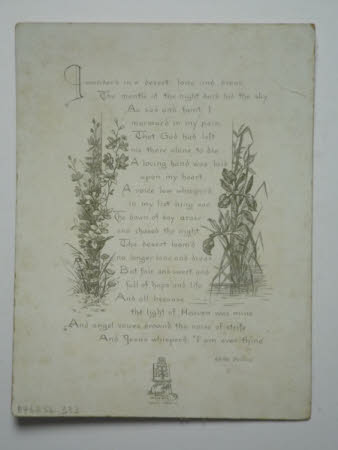 I wander'd in a desert, lone and drear,
The mantle of the night had hid the sky
As sad and faint I
murmur'd in my pain
That God had left
me there alone to die
A loving hand was laid
upon my heart
A voice low whisper'd
in my list'ning ear
The dawn of day arose
and chased the night
The desert seem'd
no longer lone and drear
But fair and sweet and
full of hope and life
And all because
the light of Heaven was mine
And angel voices drown'd the noise of strife
And Jesus whisper'd "I am ever thine